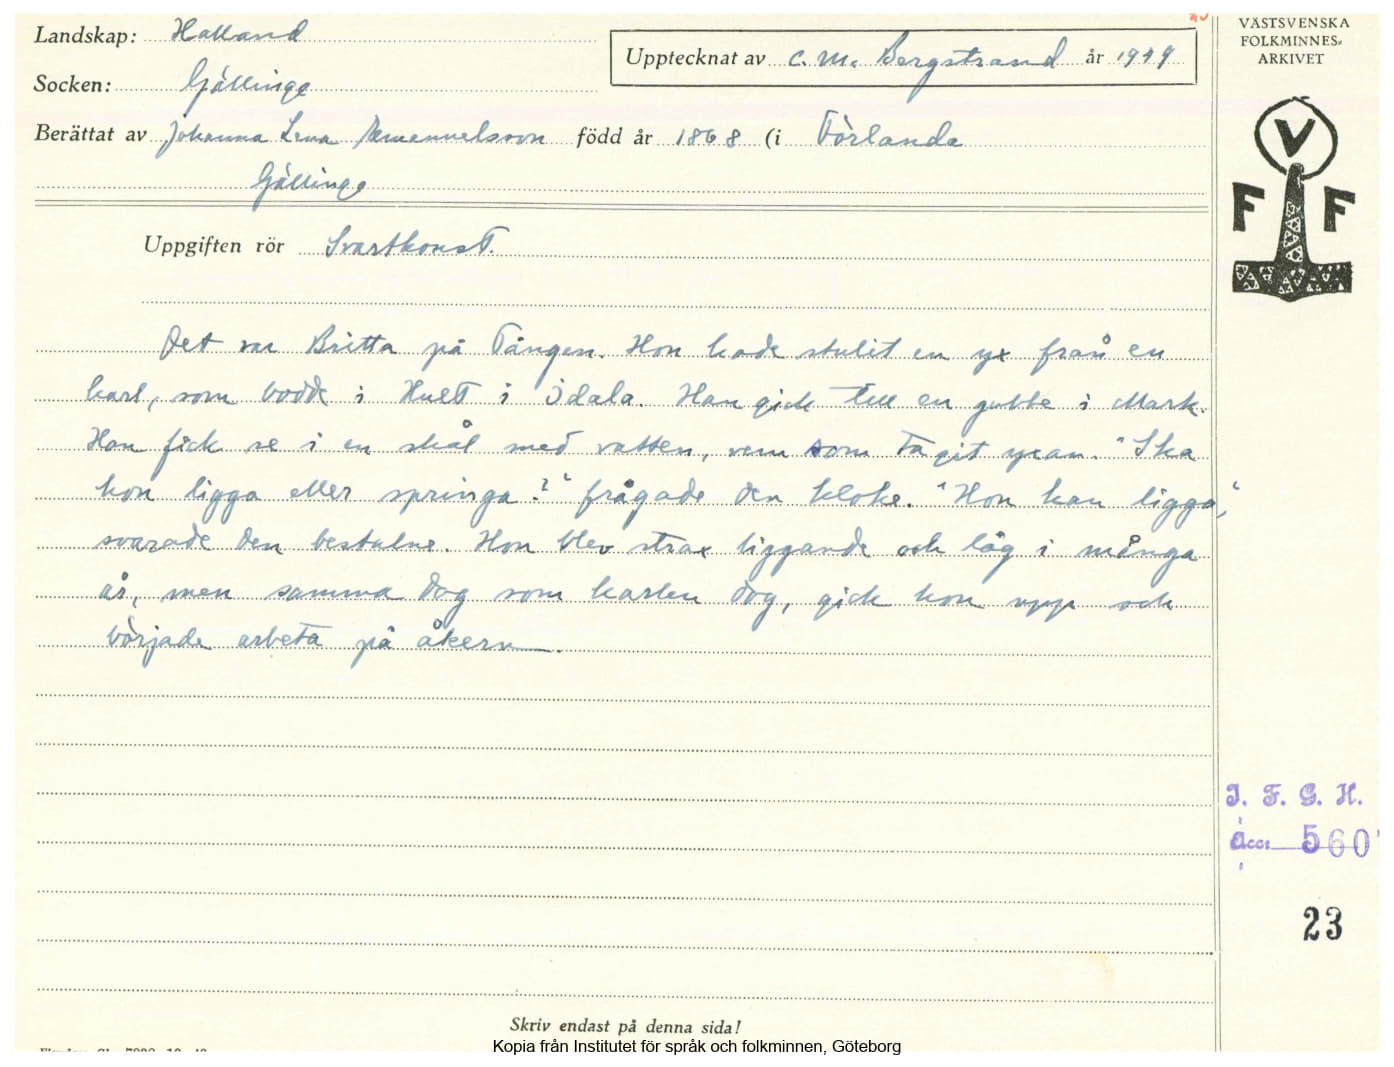 VÄSTSVENSKA
FOLKMINNES-
ARKIVET
Landskap: Halland
Upptecknat av C. M. Bergstrand år 1949
Socken: Gällinge
Berättat av Johanna Lena Emanuelsson född år 1868 (i Förlanda
Gällinge
V
F F
Uppgiften rör Svartkonst.
Det var Britta på Tången. Hon hade stulit en yx från en
karl, som bodde i Hult i Idala. Han gick till en gubbe i Mark.
Han fick se i en skål med vatten, vem som tagit yxan. "Ska
hon ligga eller springa?" frågade den kloke. "Hon kan ligga,"
svarade den bestulne. Hon blev strax liggande och låg i många
år, men samma dag som karlen dog, gick hon upp och
började arbeta på åkern.
I. F. G. H.
Acc: 560
23
Skriv endast på denna sida!
Kopia från Institutet för språk och folkminnen, Göteborg